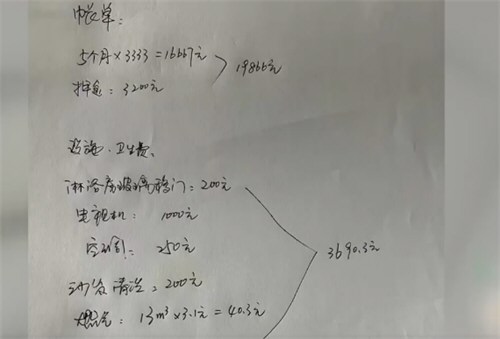 帐单:
5个月×3333=16667元
19866元
押金: 3200元
设施、卫生费、
淋浴房玻璃移门: 200元
电视机: 1000元
空调: 250元
3690.3元
沙发清洁: 200元
燃气: 13m³×3.1元=40.3元